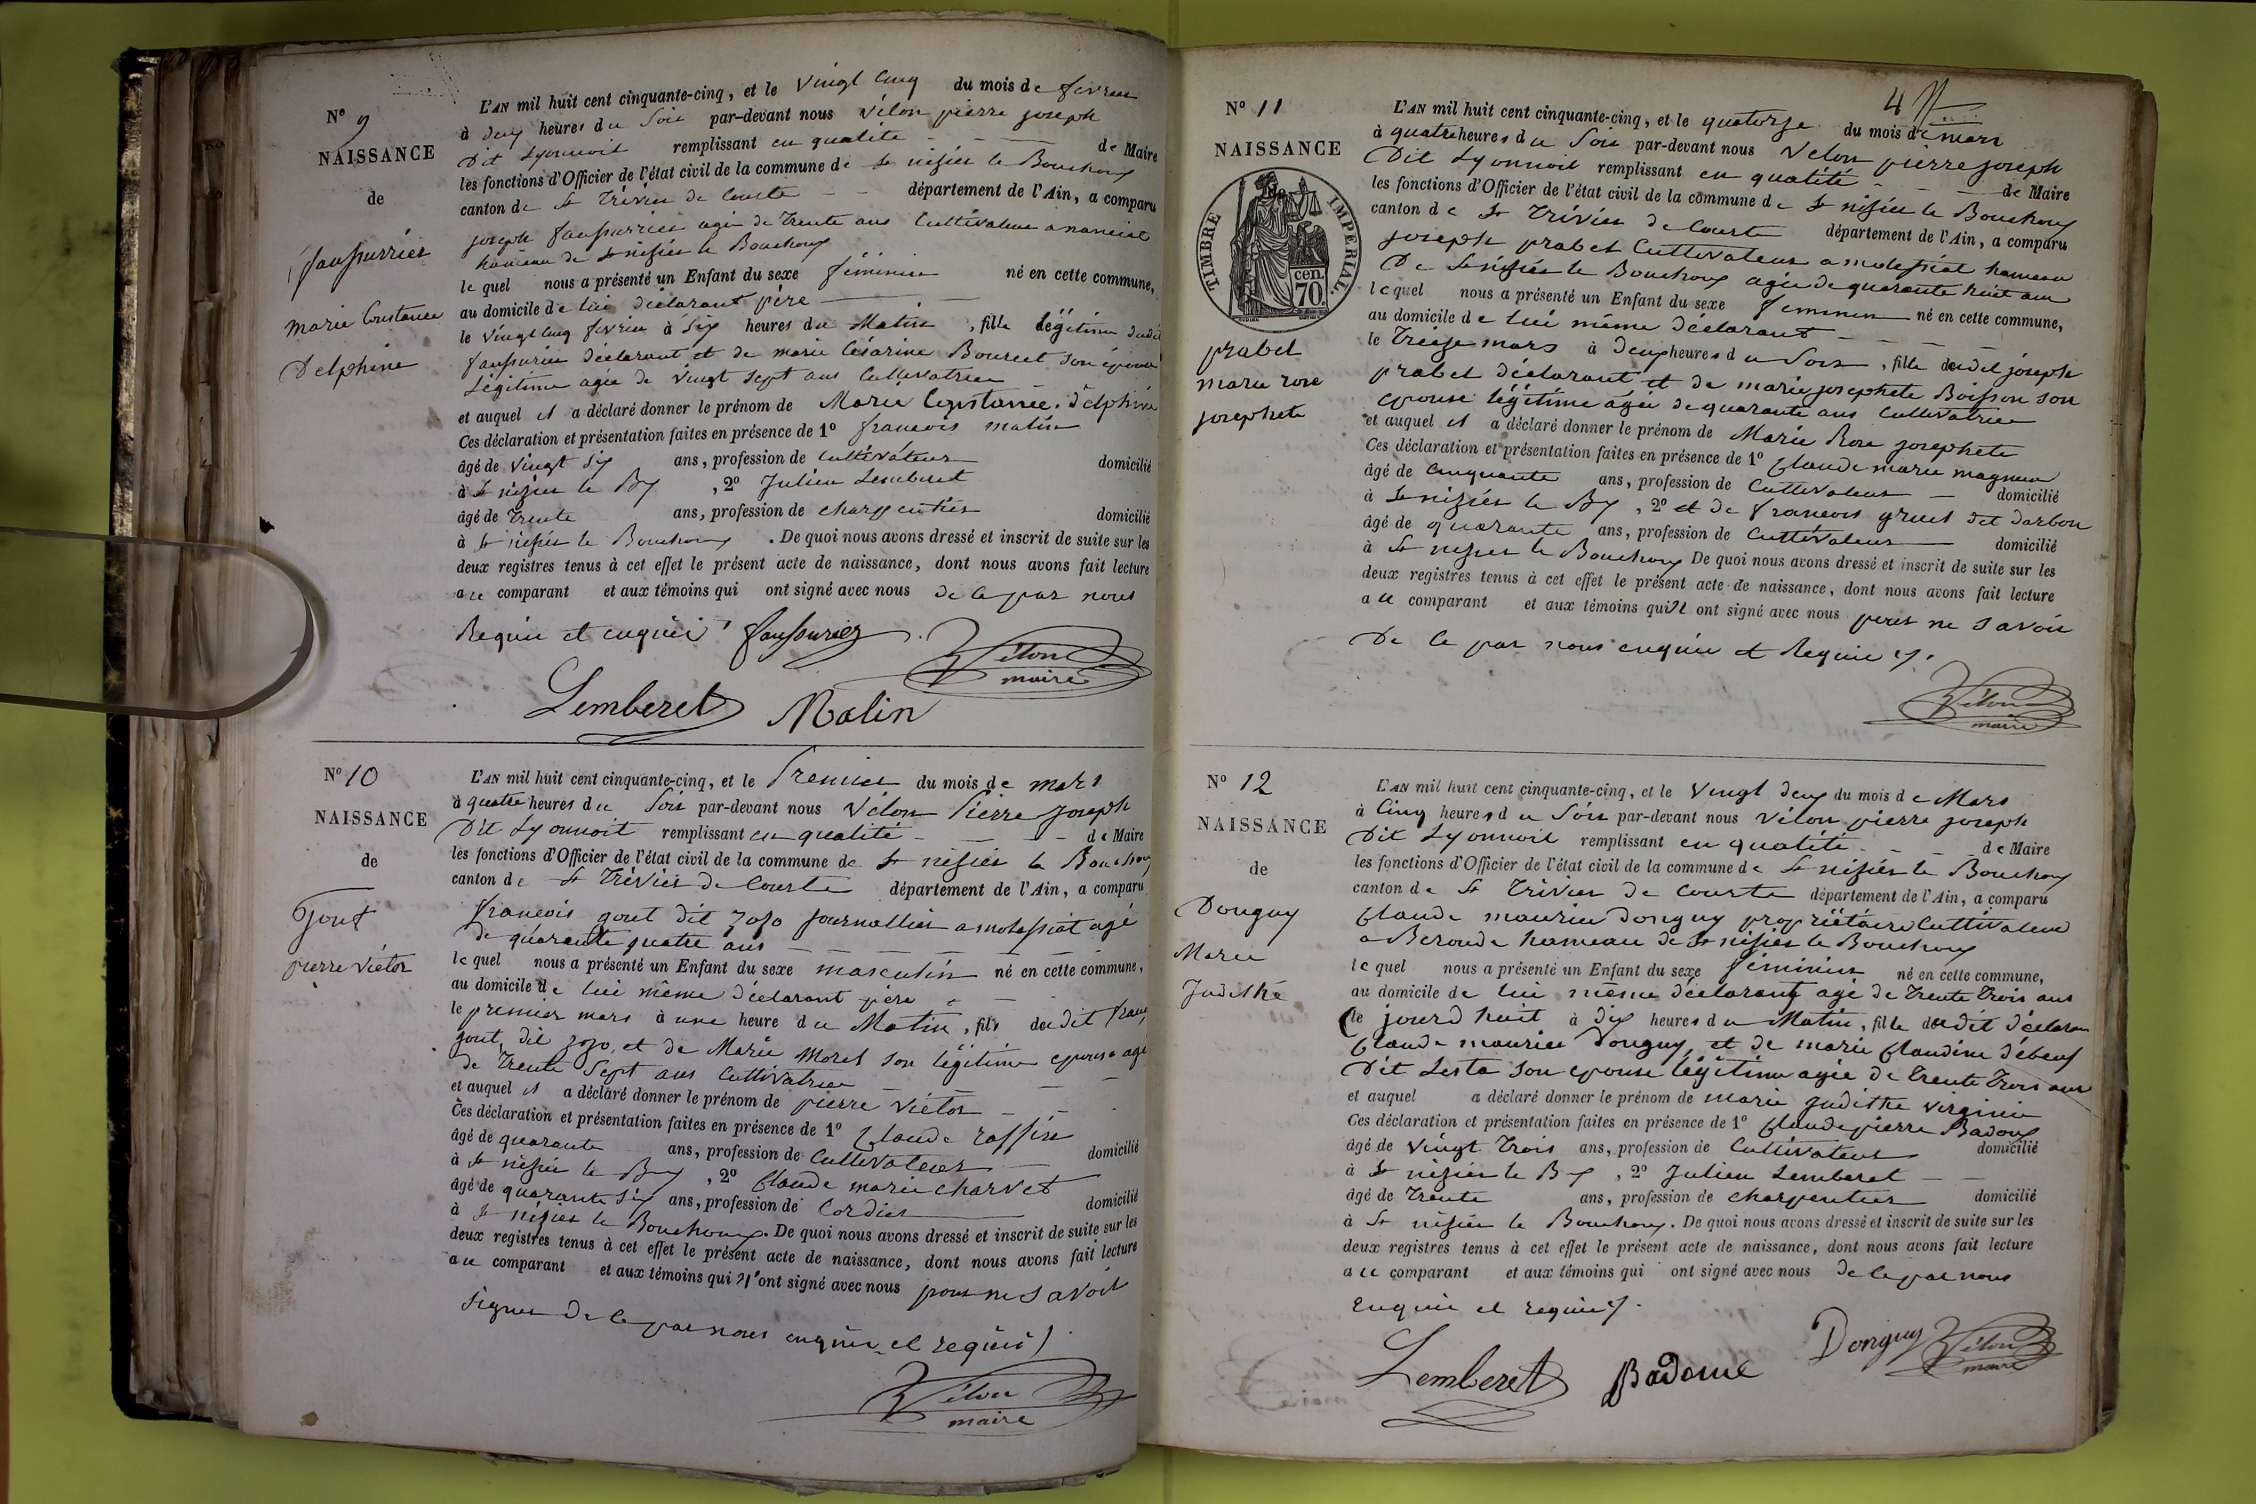 N° 9
NAISSANCE
de
faussurier
marie Constance
Delphine
L'AN mil huit cent cinquante-cinq, et le vingt cinq du mois de fevrier
à deux heures du Soir par-devant nous vélon pierre joseph
Dit Lyonnois remplissant en qualité de Maire
les fonctions d'Officier de l'état civil de la commune de St nizier le Bouchoux
canton de St Trivier de Courte département de l'Ain, a comparu
joseph faussurier agé de trente ans Cultivateur a
hameau de St nizier le Bouchoux
lequel nous a présenté un Enfant du sexe féminin né en cette commune,
au domicile de lui déclarant père
le vingt cinq fevrier à Six heures du Matin, fille légitime dudit
faussurier déclarant et de marie Césarine Bourcet son épouse
Légitime agée de vingt sept ans Cultivatrice
et auquel il a déclaré donner le prénom de Marie Constance Delphine
Ces déclaration et présentation faites en présence de 1° francois matin
âgé de vingt six ans, profession de Cultivateur domicilié
à St nizier le Bx, 2° Julien Lemberet
âgé de trente ans, profession de charpentier domicilié
à St nizier le Bouchoux. De quoi nous avons dressé et inscrit de suite sur les
deux registres tenus à cet effet le présent acte de naissance, dont nous avons fait lecture
au comparant et aux témoins qui ont signé avec nous de ce par nous
Requis et enquis faussuriez
Vélon
maire
Lemberet Matin
N° 10
NAISSANCE
de
Gout
pierre victor
L'AN mil huit cent cinquante-cinq, et le Premier du mois de mars
à quatre heures du Soir par-devant nous Vélon Pierre Joseph
Dit Lyonnoit remplissant en qualité de Maire
les fonctions d'Officier de l'état civil de la commune de St nizier le Bouchoux
canton de St Trévier de Courte département de l'Ain, a comparu
francois gout dit zozo journallier a molassiat agé
de quarante quatre ans
lequel nous a présenté un Enfant du sexe masculin né en cette commune,
au domicile de lui même déclarant père
le premier mars à une heure du Matin, fils dudit franç
gout dit zozo et de Marie Morel son légitime epouse agé
de trente Sept ans Cultivatrice
et auquel il a déclaré donner le prénom de pierre victor
Ces déclaration et présentation faites en présence de 1° Claude raffin
âgé de quarante ans, profession de Cultivateur domicilié
à St nizier le Bx, 2° Claude marie charvet
âgé de quarante six ans, profession de Cordier domicilié
à St nizier le Bouchoux. De quoi nous avons dressé et inscrit de suite sur les
deux registres tenus à cet effet le présent acte de naissance, dont nous avons fait lecture
au comparant et aux témoins qui n'ont signé avec nous pour ne savoir
signer de ce par nous enquis et requis
Vélon
maire
4
N° 11
NAISSANCE
TIMBRE IMPERIAL
cen.
70.
prabel
marie rose
josephete
L'AN mil huit cent cinquante-cinq, et le quatorze du mois de mars
à quatre heures du Soir par-devant nous Velon pierre joseph
Dit Lyonnoit remplissant en qualité de Maire
les fonctions d'Officier de l'état civil de la commune de St nizier le Bouchoux
canton de St Trivier de Court département de l'Ain, a comparu
joseph prabel Cultivateur a molassiat hameau
De St nizier le Bouchoux agée de quarante huit ans
lequel nous a présenté un Enfant du sexe féminin né en cette commune,
au domicile de lui même déclarant
le treize mars à deux heures du Soir, fille dudit joseph
prabel déclarant et de marie josephete Boisson son
epouse légitime agée de quarante ans Cultivatrice
et auquel il a déclaré donner le prénom de Marie Rose josephete
Ces déclaration et présentation faites en présence de 1° Claude marie magnien
âgé de Cinquante ans, profession de Cultivateur domicilié
à St nizier le Bx, 2° et de francois gruel dit darbon
âgé de quarante ans, profession de Cultivateur domicilié
à St nizier le Bouchoux De quoi nous avons dressé et inscrit de suite sur les
deux registres tenus à cet effet le présent acte de naissance, dont nous avons fait lecture
au comparant et aux témoins qui n ont signé avec nous pour ne savoir
De ce par nous enquis et Requis
Vélon
maire
N° 12
NAISSANCE
de
Donguy
Marie
Judithe
L'AN mil huit cent cinquante-cinq, et le vingt deux du mois de Mars
à Cinq heures du Soir par-devant nous vélon pierre joseph
Dit Lyonnoit remplissant en qualité de Maire
les fonctions d'Officier de l'état civil de la commune de St nizier le Bouchoux
canton de St Trivier de Courte département de l'Ain, a comparu
Claude maurice Donguy propriétaire Cultivateur
a Beronde hameau de St nizier le Bouchoux
lequel nous a présenté un Enfant du sexe féminin né en cette commune,
au domicile de lui même déclarant agé de trente trois ans
le jourd huit à dix heures du Matin, fille dudit déclaran
Claude maurice Donguy, et de marie Claudine débeuf
Dit Lesta son epouse légitime agée de trente trois ans
et auquel a déclaré donner le prénom de marie Judithe virginie
Ces déclaration et présentation faites en présence de 1° Claude pierre Badoux
âgé de vingt trois ans, profession de Cultivateur domicilié
à St nizier le Bx, 2° Julien Lemberet
âgé de trente ans, profession de charpentier domicilié
à St nizier le Bouchoux. De quoi nous avons dressé et inscrit de suite sur les
deux registres tenus à cet effet le présent acte de naissance, dont nous avons fait lecture
au comparant et aux témoins qui ont signé avec nous de ce par nous
Enquis et requis
Lemberet Badoux Donguy Vélon
maire